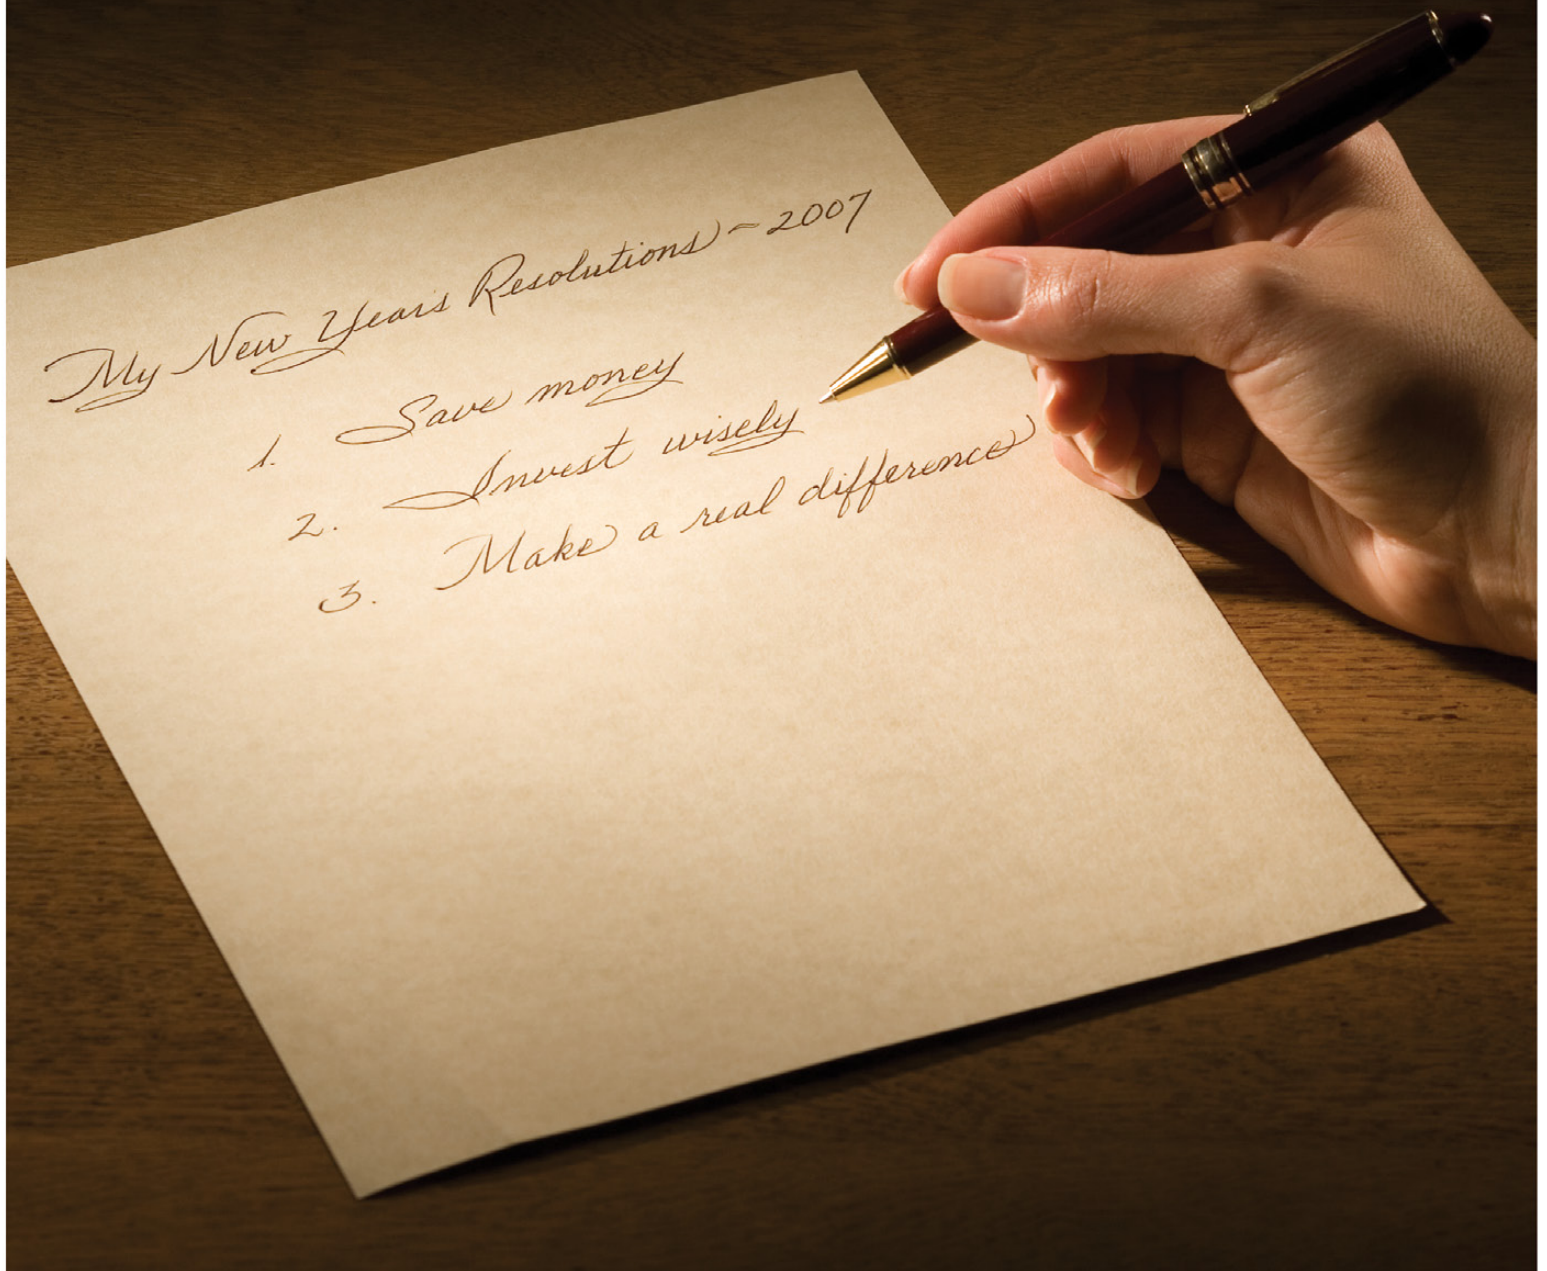 My New Years Resolutions - 2007
1. Save money
2. Invest wisely
3. Make a real difference